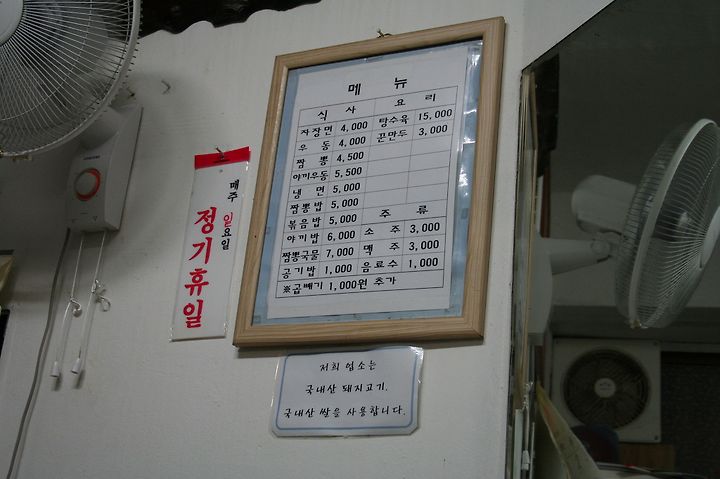 메 뉴
식 사 요 리
자장면 4,000 탕수육 15,000
우 동 4,000 꾼만두 3,000
짬 뽕 4,500
야끼우동 5,500
냉 면 5,000
짬뽕밥 5,000
볶음밥 5,000 주 류
야끼밥 6,000 소 주 3,000
짬뽕국물 7,000 맥 주 3,000
공기밥 1,000 음료수 1,000
※곱빼기 1,000원 추가
매주 일요일
정기휴일
저희 업소는
국내산 돼지고기,
국내산 쌀을 사용합니다.